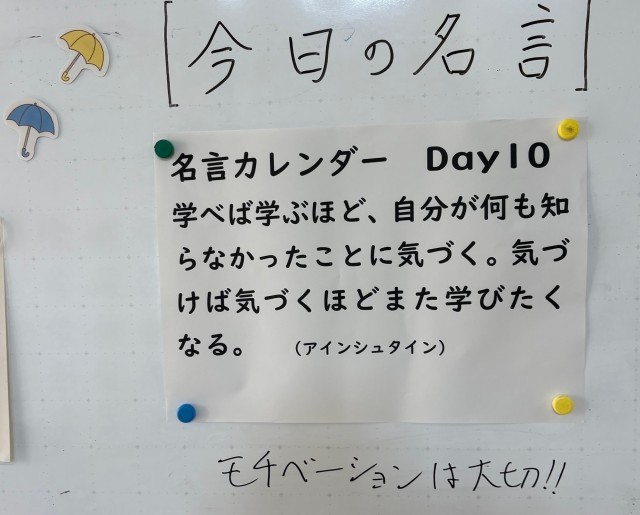 [今日の名言]
名言カレンダー　Day10
学べば学ぶほど、自分が何も知
らなかったことに気づく。気づ
けば気づくほどまた学びたく
なる。　（アインシュタイン）
モチベーションは大切!!